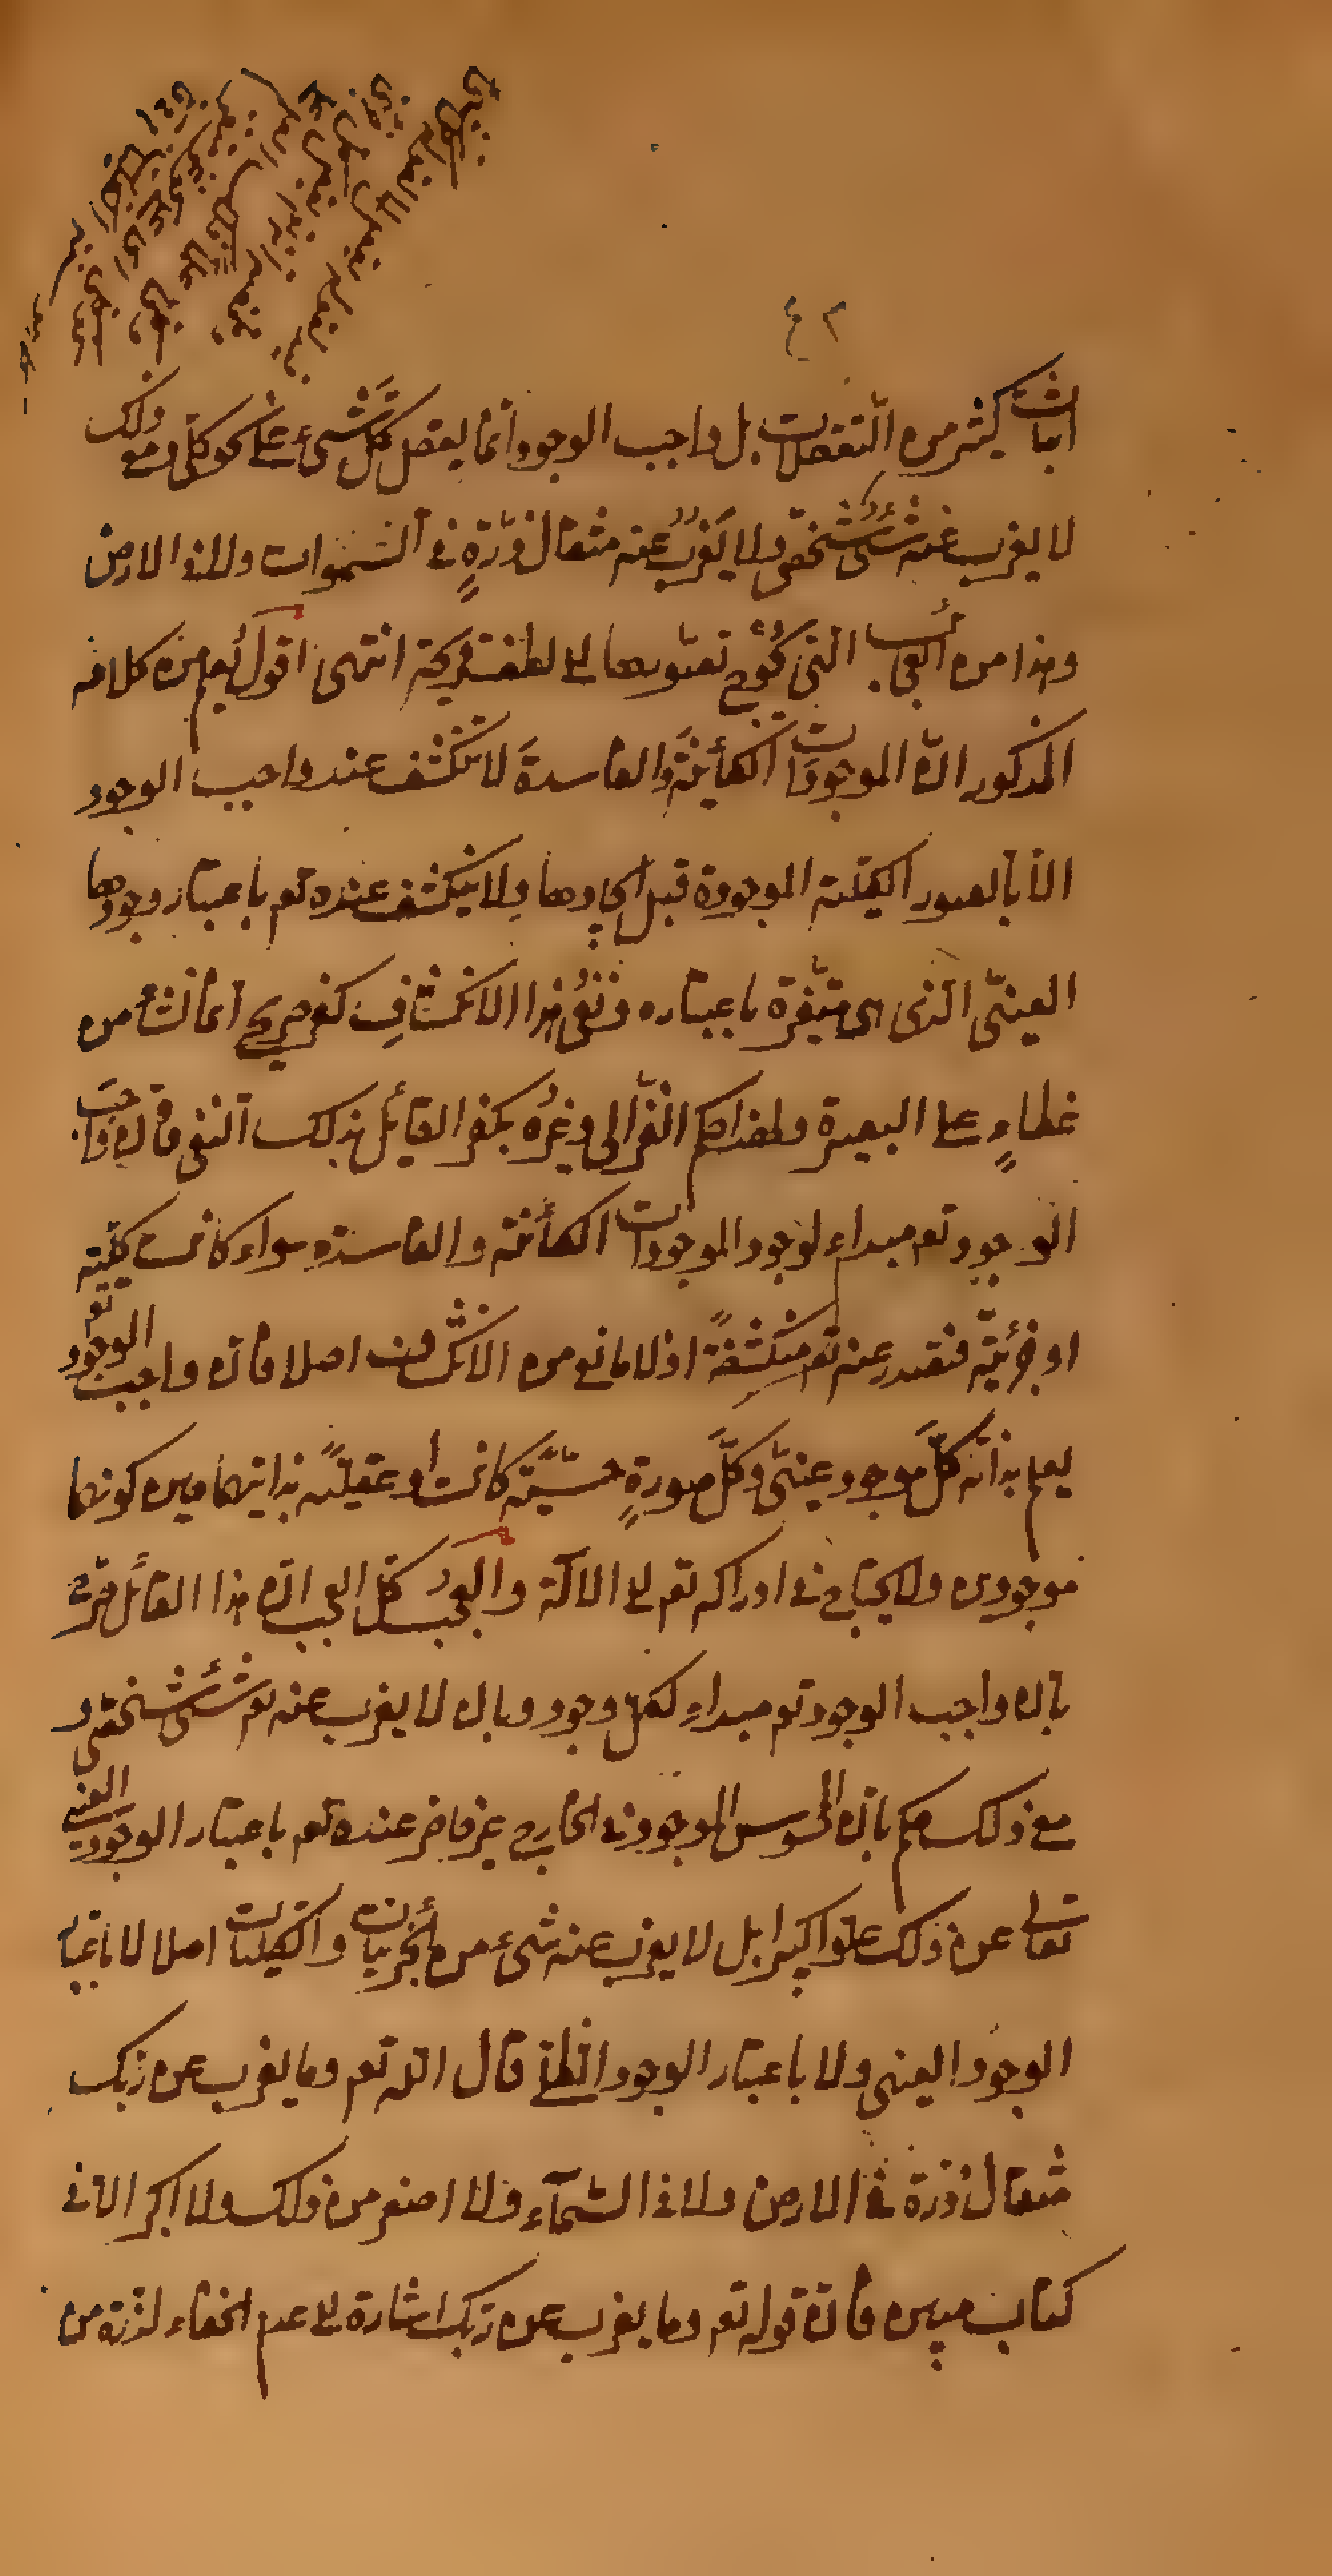 ٤٢
اثبات كثير من التعقلات بل واجب الوجود انما يعقل كل شئ على نحو كلى ومع ذلك
لا يعزب عنه شئ شخصى ولا يعزب عنه مثقال ذرة فى السموات ولا فى الارض
وهذا من العجائب التى يحوج تصورها الى لطف قريحة انتهى اقول يعلم من كلامه
المذكور ان الموجودات الكائنة والفاسدة لا تنكشف عند واجب الوجود
الا بالصور الكلية الموجودة قبل ايجادها ولا ينكشف عنده تعم باعتبار وجودها
العينى الذى هى متغيرة باعتباره ونفى هذا الانكشاف كفر صريح انما نشأ من
غطاء على البصيرة ولهذا حكم الغزالى وغيره بكفر القائل بذلك النفى فان واجب
الوجود تعم مبداء لوجود الموجودات الكائنة والفاسدة سواء كانت كلية
او جزئية فتصدر عنه تعم منكشفة اذ لا مانع من الانكشاف اصلا فان واجب الوجود تعم
يعلم بذاته كل موجود عينى وكل صورة حسية كانت او عقلية بذاتيهما حين كونهما
موجودين ولا يحتاج فى ادراكه تعم الى الآلة والعجب كل العجب ان هذا القائل قد صرح
بان واجب الوجود تعم مبداء لكل وجود وبان لا يعزب عنه تعم شئ شخصى و
مع ذلك حكم بان المحسوس الموجود فى الخارج غير حاضر عنده تعم باعتبار الوجود العينى
تعالى عن ذلك علوا كبيرا بل لا يعزب عنه شئ من الجزئيات والكليات اصلا لا باعتبار
الوجود العينى ولا باعتبار الوجود الظلى قال الله تعم وما يعزب عن ربك
مثقال ذرة فى الارض ولا فى السمآء ولا اصغر من ذلك ولا اكبر الا فى
كتاب مبين فان قوله تعم وما يعزب عن ربك اشارة الى عدم الخفاء لذرة من